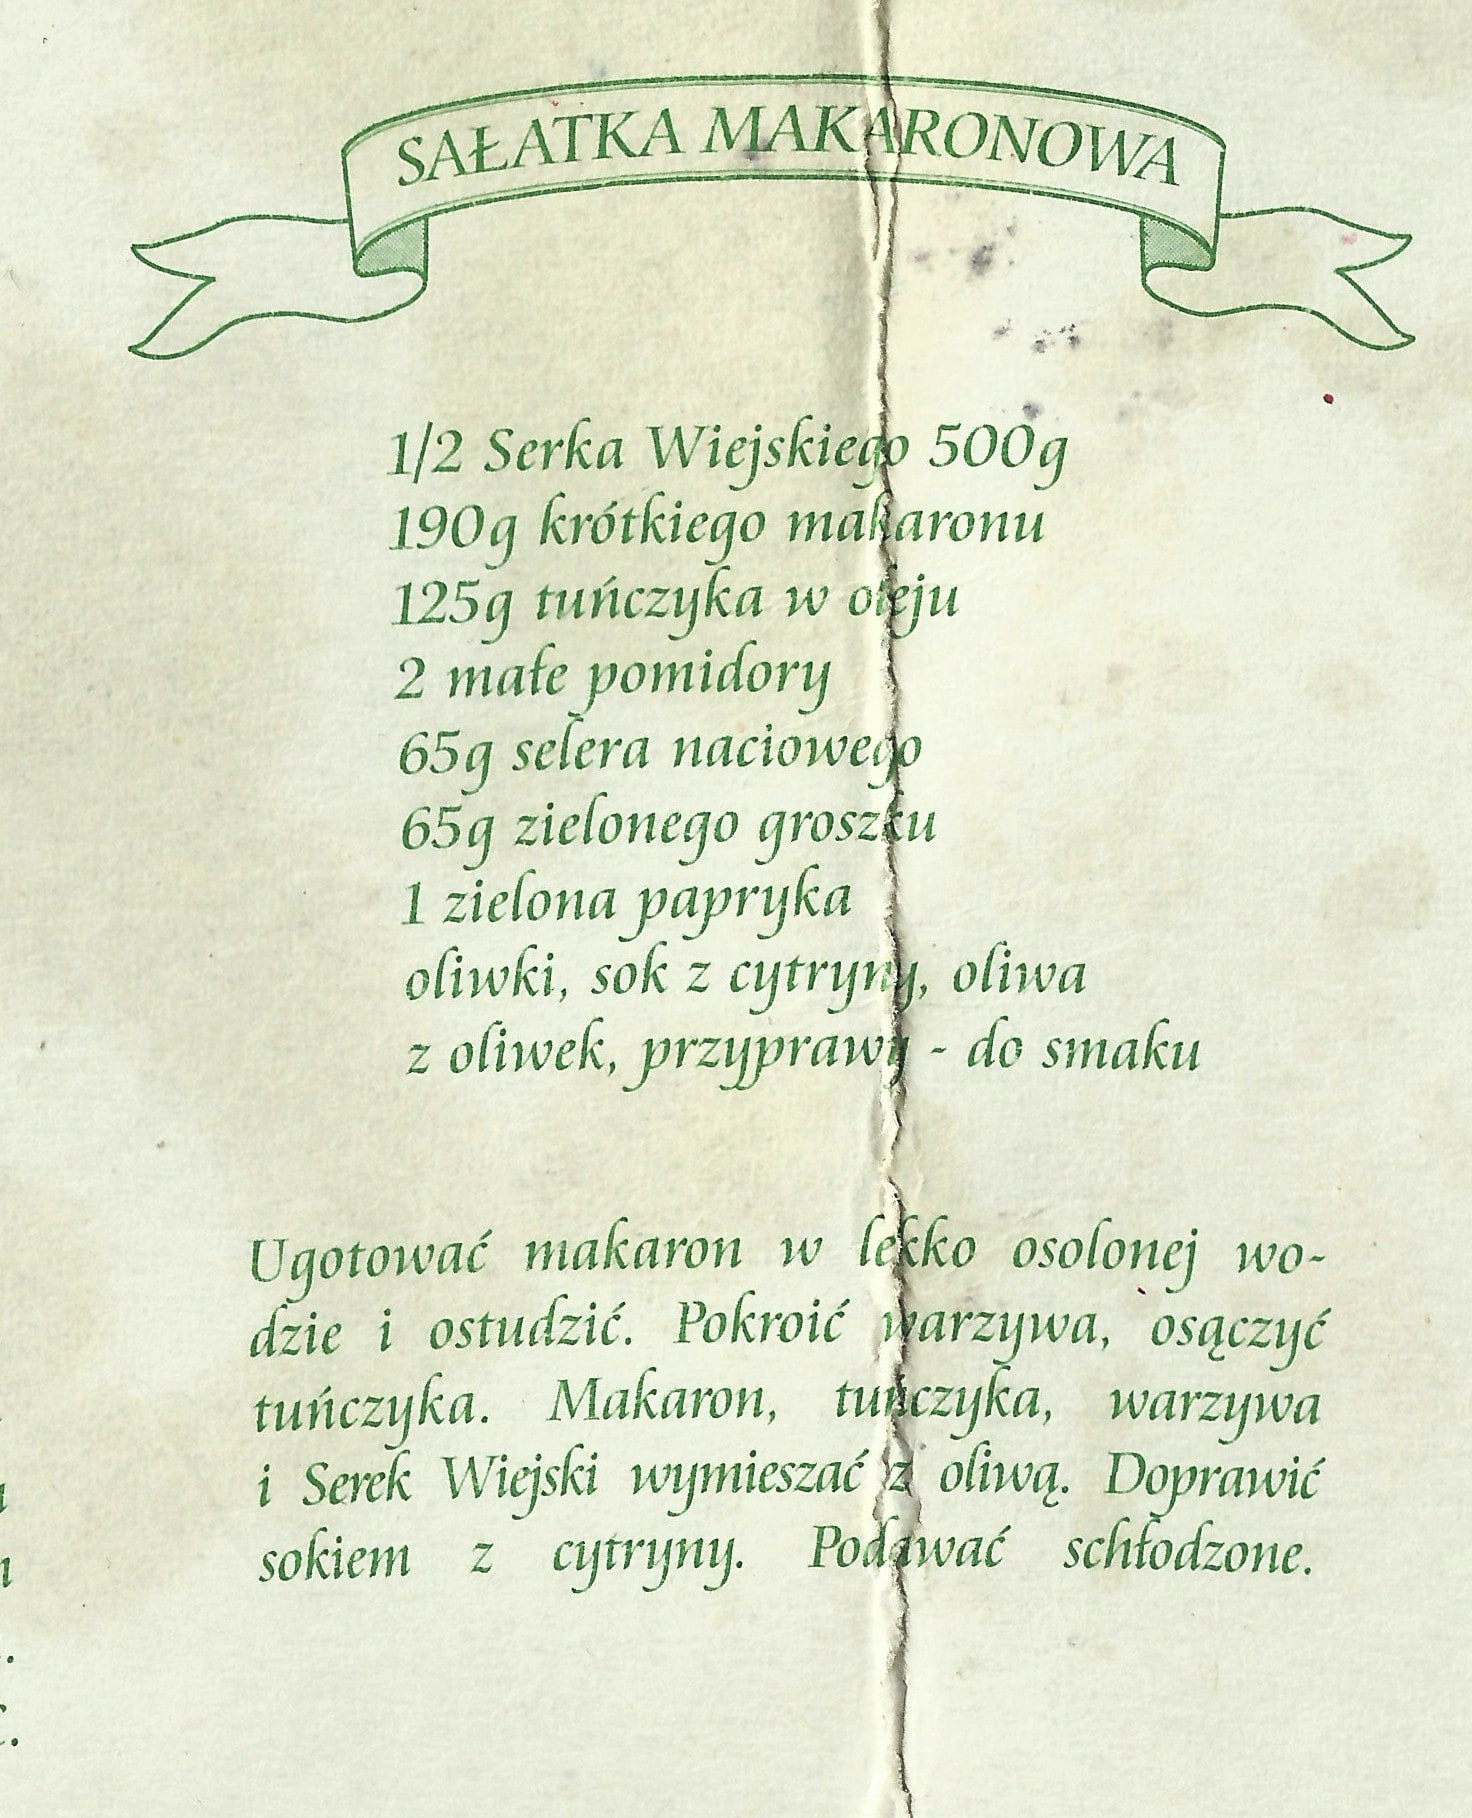 SAŁATKA MAKARONOWA
1/2 Serka Wiejskiego 500g
190g krótkiego makaronu
125g tuńczyka w oleju
2 małe pomidory
65g selera naciowego
65g zielonego groszku
1 zielona papryka
oliwki, sok z cytryny, oliwa
z oliwek, przyprawy - do smaku
Ugotować makaron w lekko osolonej wo-
dzie i ostudzić. Pokroić warzywa, osączyć
tuńczyka. Makaron, tuńczyka, warzywa
i Serek Wiejski wymieszać z oliwą. Doprawić
sokiem z cytryny. Podawać schłodzone.